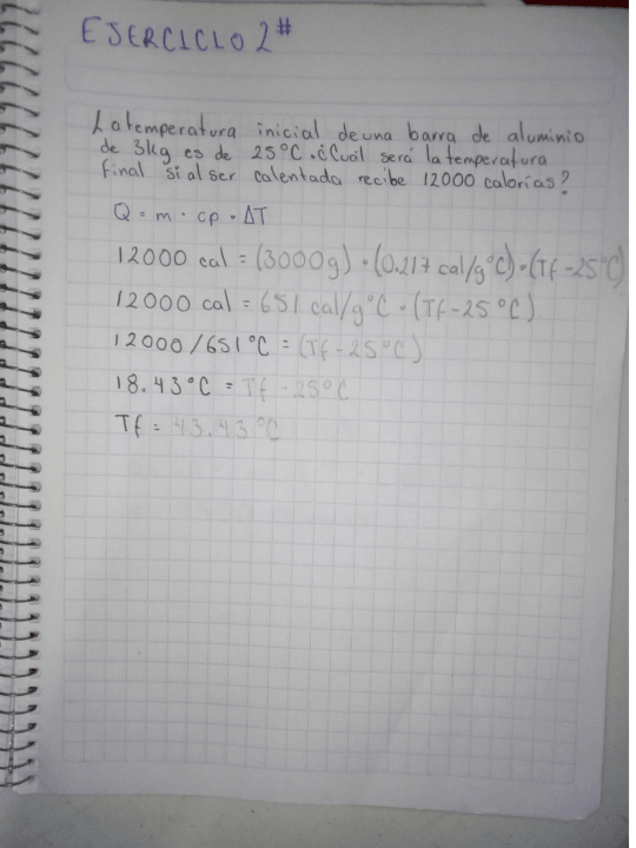 EJERCICIO 2#
La temperatura inicial de una barra de aluminio
de 3kg es de 25°C. ¿Cuál será la temperatura
final si al ser calentada recibe 12000 calorías?
Q = m · cp · ΔT
12000 cal = (3000g) · (0.217 cal/g°C) · (Tf - 25°C)
12000 cal = 651 cal/g°C · (Tf - 25°C)
12000/651°C = (Tf - 25°C)
18.43°C = Tf - 25°C
Tf = 43.43°C